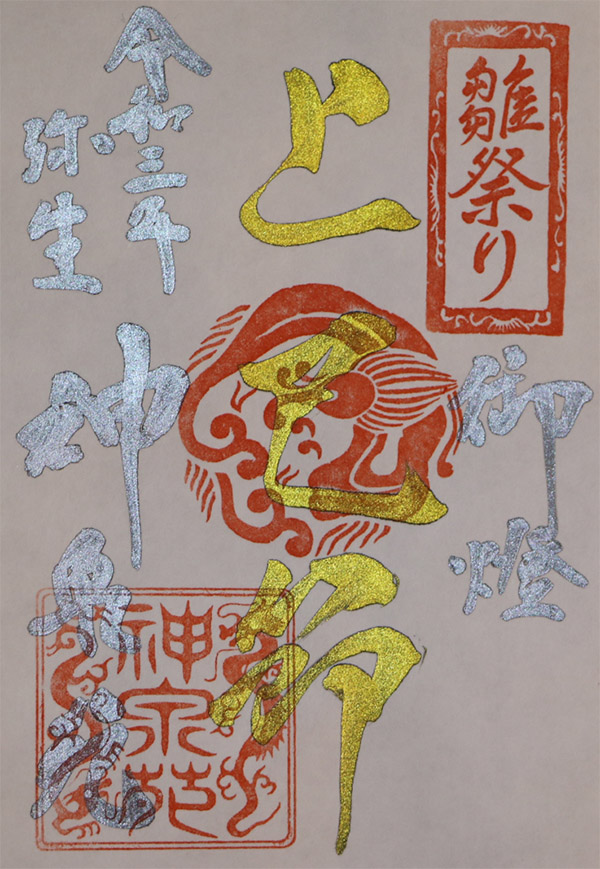 雛祭り
御燈
上巳節
令和三年
弥生
神泉苑
神泉苑